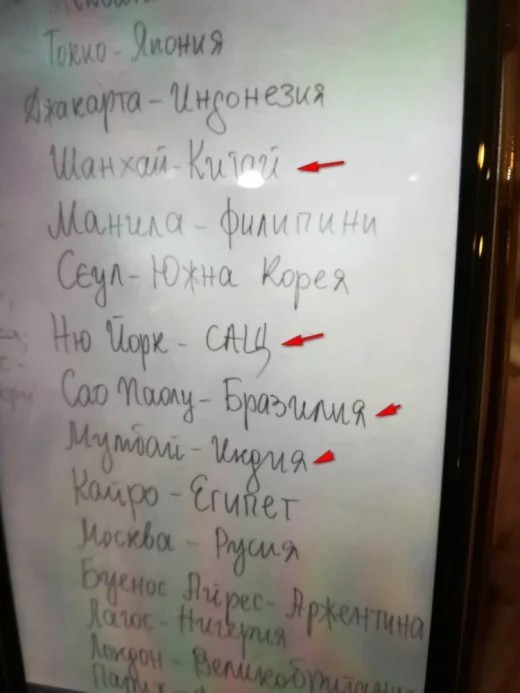 Токио - Япония
Джакарта - Индонезия
Шанхай - Китай
Манила - Филипини
Сеул - Южна Корея
Ню Йорк - САЩ
Сао Паолу - Бразилия
Мумбай - Индия
Кайро - Египет
Москва - Русия
Буенос Айрес - Аржентина
Лагос - Нигерия
Лондон - Великобритания